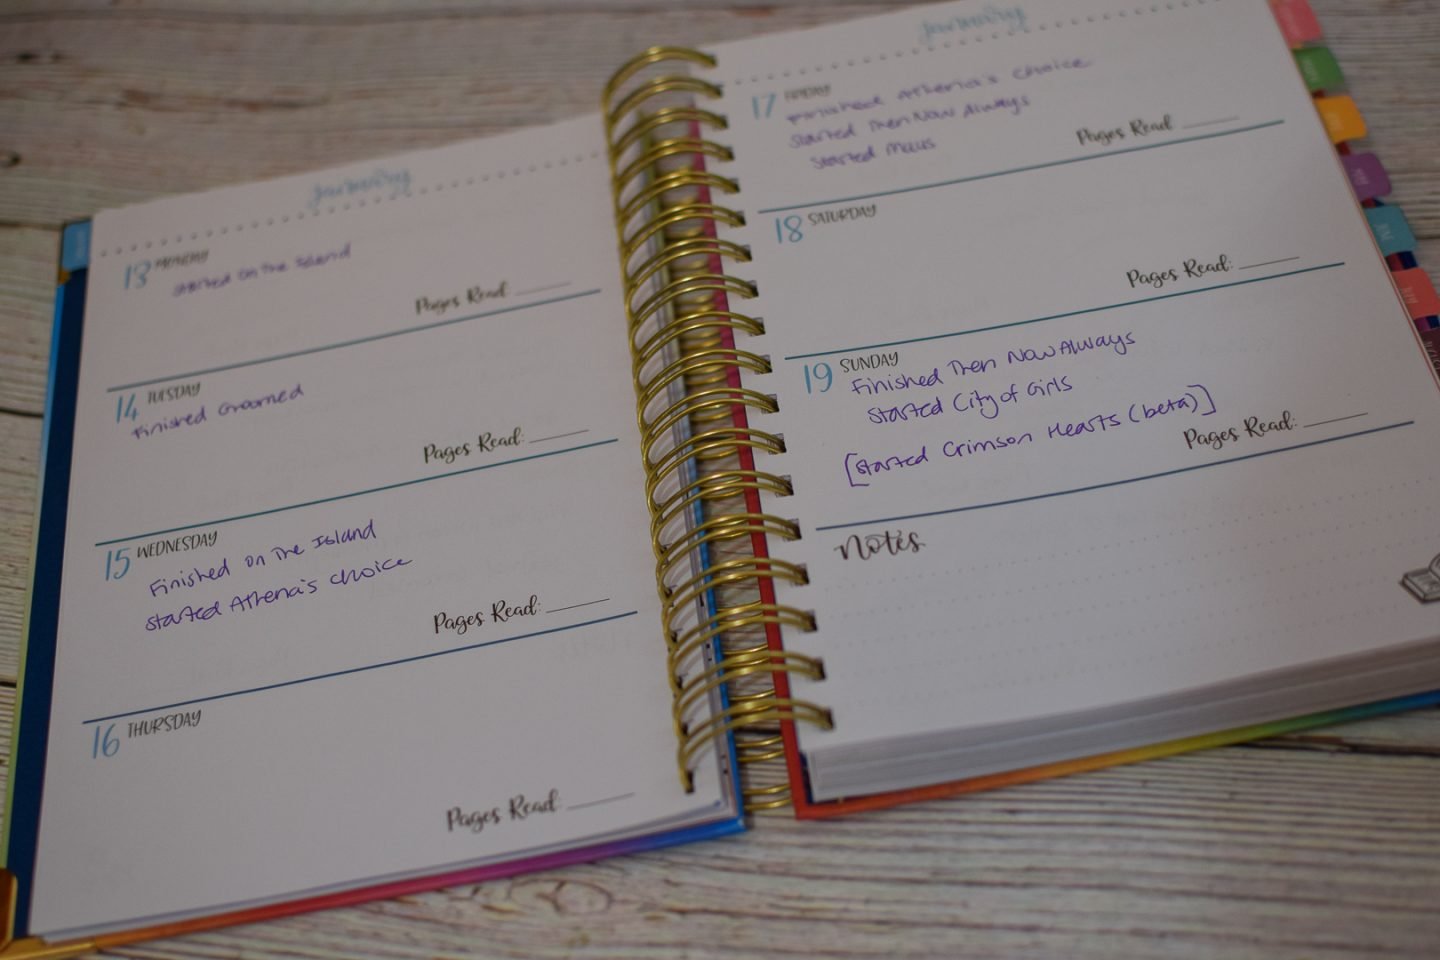 January
13 MONDAY
started on the Island
Pages Read:
14 TUESDAY
Finished Groomed
Pages Read:
15 WEDNESDAY
Finished on the Island
started Athena's choice
Pages Read:
16 THURSDAY
Pages Read:
January
17 FRIDAY
Finished Athena's choice
Started Then Now Always
Started Maus
Pages Read:
18 SATURDAY
Pages Read:
19 SUNDAY
Finished Then Now Always
started City of Girls
[started Crimson Hearts (beta)]
Pages Read:
Notes